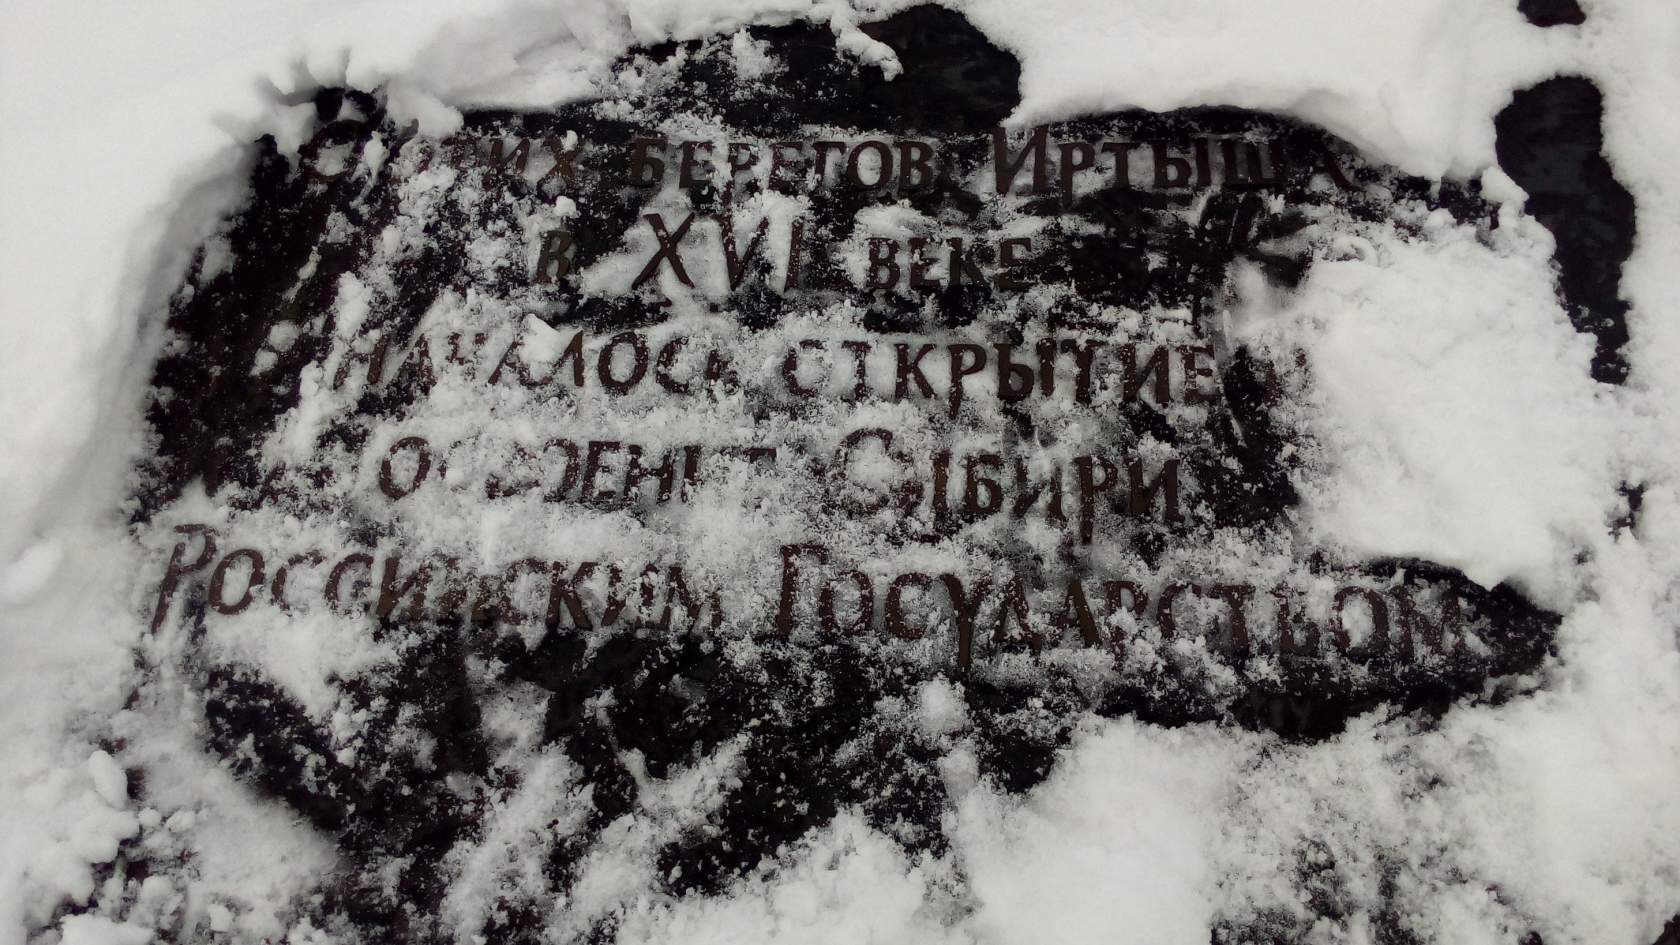 С этих берегов Иртыша
в XVI веке
началось открытие и
освоение Сибири
Российским Государством